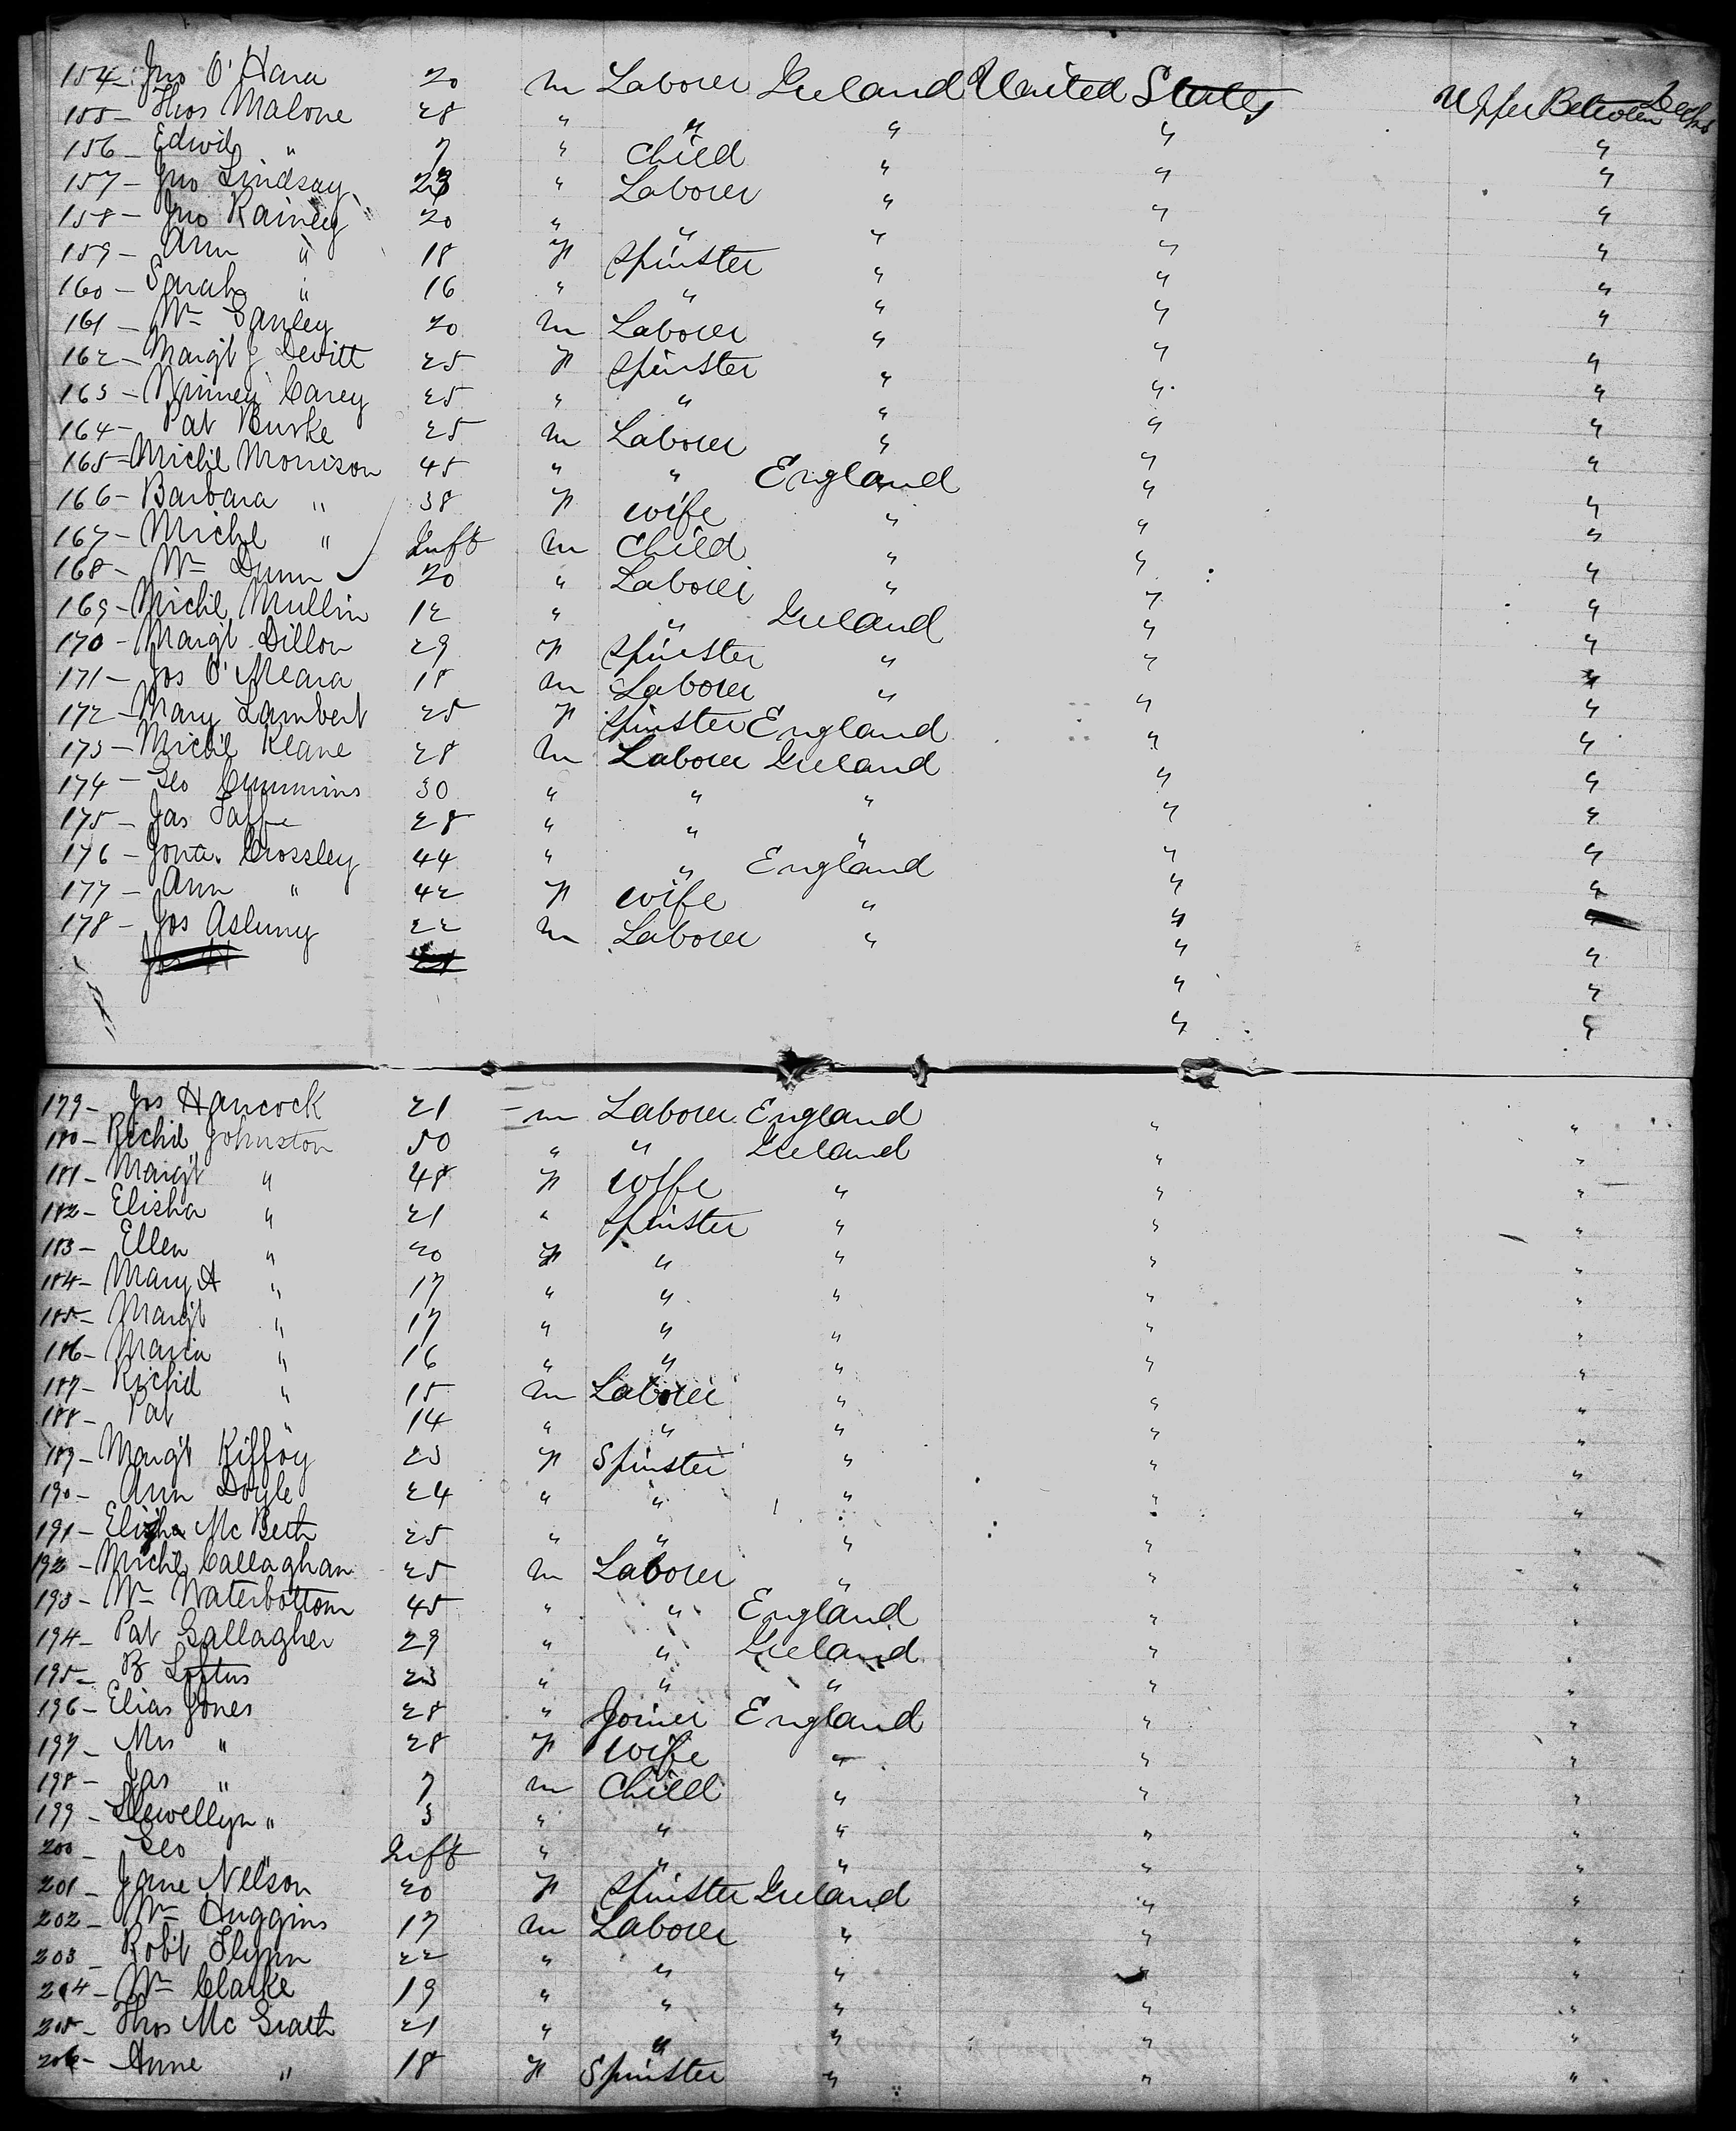 154- Jno O'Hara 20 m Laborer Ireland United States Upper Between Decks
155- Thos Malone 28 " " " " "
156- Edwd " 7 " Child " " "
157- Jno Lindsay 23 " Laborer " " "
158- Jno Rainey 20 " " " " "
159- Ann " 18 F Spinster " " "
160- Sarah " 16 " " " " "
161- Wm Ganley 20 m Laborer " " "
162- Margt J Devitt 25 F Spinster " " "
163- Winney Carey 25 " " " " "
164- Pat Burke 25 m Laborer " " "
165- Michl Morrison 45 " " England " "
166- Barbara " 38 F wife " " "
167- Michl " Inft m Child " " "
168- Wm Dunn 20 " Laborer " " "
169- Michl Mullin 12 " " Ireland " "
170- Margt Dillon 29 F Spinster " " "
171- Jos O'Meara 18 m Laborer " " "
172- Mary Lambert 25 F Spinster England " "
173- Michl Keane 28 m Laborer Ireland " "
174- Geo Cummins 30 " " " " "
175- Jas Taffe 28 " " " " "
176- Jonta. Crossley 44 " " England " "
177- Ann " 42 F wife " " "
178- Jos 22 m Laborer " " "
179- Jos Hancock 21 - m Laborer England " "
180- Richd Johnston 50 " " Ireland " "
181- Margt " 48 F wife " " "
182- Elisha " 21 " Spinster " " "
183- Ellen " 20 F " " " "
184- Mary A " 17 " " " " "
185- Margt " 17 " " " " "
186- Maria " 16 " " " " "
187- Richd " 15 m Laborer " " "
188- Pat " 14 " " " " "
189- Margt Kiffoy 23 F Spinster " " "
190- Ann Doyle 24 " " " " "
191- Mc Beth 25 " " " " "
192- Michl Callaghan 25 m Laborer " " "
193- Wm Waterbottom 45 " " England " "
194- Pat Gallagher 29 " " Ireland " "
195- B Loftus 23 " " " " "
196- Elias Jones 28 " Joiner England " "
197- Mrs " 28 F wife " " "
198- Jas " 7 m Child " " "
199- Llewellyn " 3 " " " " "
200- Geo " Inft " " " " "
201- Jane Nelson 20 F Spinster Ireland " "
202- Wm Huggins 17 m Laborer " " "
203- Robt Flynn 22 " " " " "
204- Wm Clarke 19 " " " " "
205- Thos Mc Grath 21 " " " " "
206- Anne " 18 F Spinster " " "